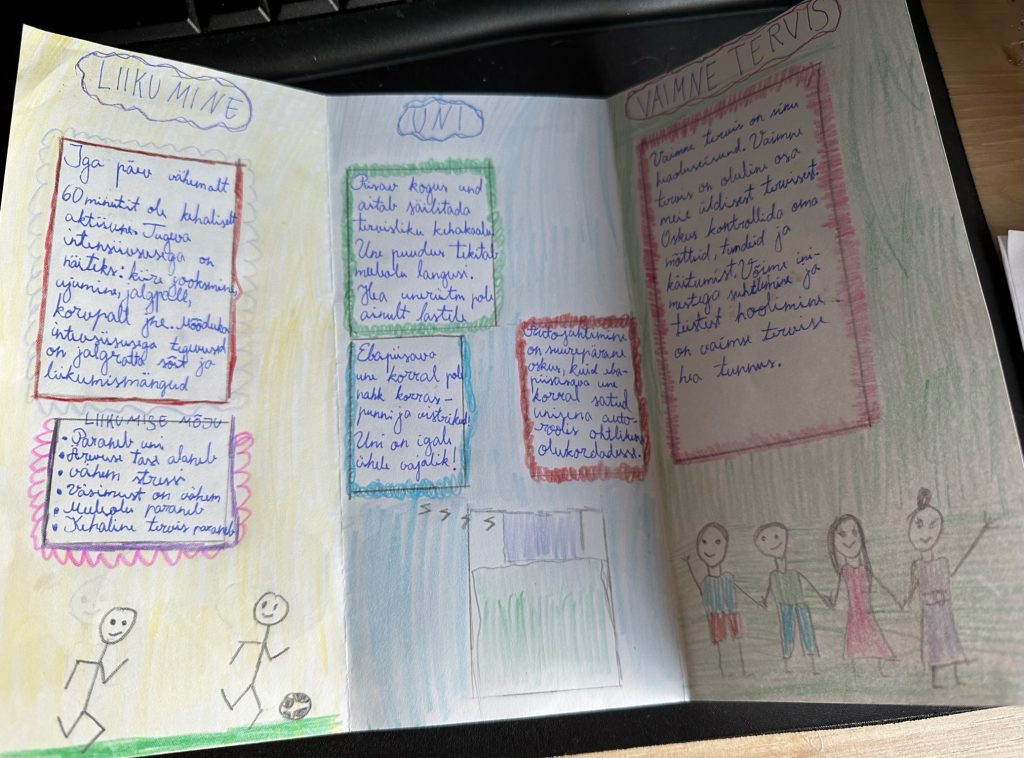 LIIKUMINE
Iga päev vähemalt
60 minutit ole kehaliselt
aktiivne. Tugeva
intensiivsusega on
näiteks: kiire jooksmine,
ujumine, jalgpall,
korvpall jne. Mõõduka
intensiivsusega tegevused
on jalgratta sõit ja
liikumismängud
LIIKUMISE MÕJU
• Paraneb uni
• Ärevuse tase alaneb
• vähem stress
• Väsimust on vähem
• Meeleolu paraneb
• Kehaline tervis paraneb
UNI
Piisav kogus und
aitab säilitada
tervisliku kehakaalu.
Une puudus tekitab
meeleolu langusi.
Hea unerütm pole
ainult lastele
Ebapiisava
une korral pole
nahk korras-
punni ja vistrikud!
Uni on igale
ühele vajalik!
Autojuhtimine
on suurepärane
oskus, kuid eba-
piisasava une
korral satud
unisena auto-
roolis ohtlikusse
olukordadesse.
VAIMNE TERVIS
Vaimne tervis on sinu
headuseisund. Vaimne
tervis on oluline osa
meie üldisest tervisest.
Oskus kontrollida oma
mõtteid, tundeid ja
käitumist. Võime ini-
mestega suhtlemise ja
teistest hoolimine
on vaimse tervise
hea tunnus.